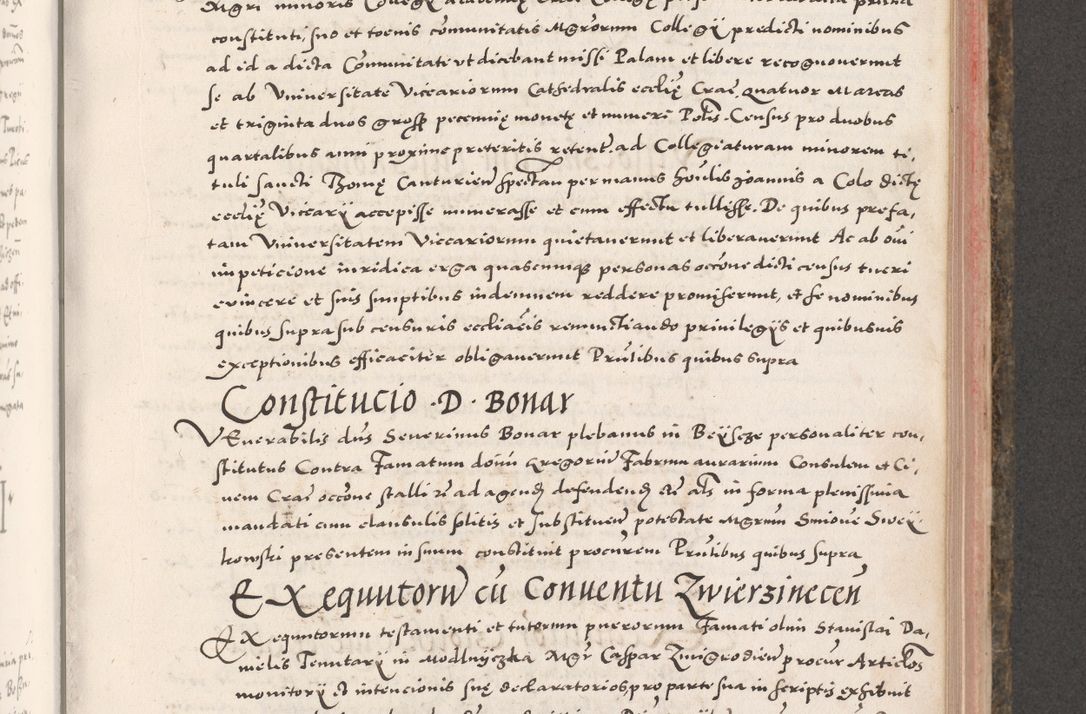 constituti, suo et toeius communitatis Mgrorum Collegy predicti nominibus
ad id a dicta Communitate vt dicebant missi Palam et libere recognouerunt
se ab Vniuersitate Viccariorum Cathedralis ecclię Crac. Quatuor Marcas
et triginta duos gross pecunię monetę et numeri Polis. Census pro duobus
quartalibus anni proxime preteritis retent. ad Collegiaturam minorem ti,
tuli sancti Thomę Canturien spectan per manus Joannis a Colo dictę
ecclię Viccary accepisse numerasse et cum effectu tullisse. De quibus prefa,
tam Vniuersitatem Viccariorum quietauerunt et liberauerunt Ac ab oui
impeticione iuridica erga quascunque personas occone dicti census tueri
euincere et suis sumptibus indemnem reddere promiserunt, et se nominibus
quibus supra sub censuris eccliacis renunctiando priuilegys et quibusuis
exceptionibus efficaciter obligauerunt Pntibus quibus supra
Constitucio . D . Bonar
VEnerabilis dns Seuerinus Bonar plebanus in Beyscze personaliter con,
stitutus Contra Famatum domi Gregoriu Fabrum aurarium Consulem et Ci,
uem Crac occone stalli rc ad agend defendend etc als in forma plenissima
mandati cum clausulis solitis et substituen potestate Mgrum Simone Swey,
kowski presentem in suum constituit procurem Pntibus quibus supra
EXequutoru cu Conuentu Zwierzinecen
EXequutorum testamenti et tutorum puerorum Famati olim Stanislai Da,
nielis Tenutary in Modlnyczka Mgr Caspar Zmigrodien procur Articlos
monitory et intencionis suę declaratorios pro parte sua in scriptis exhibuit